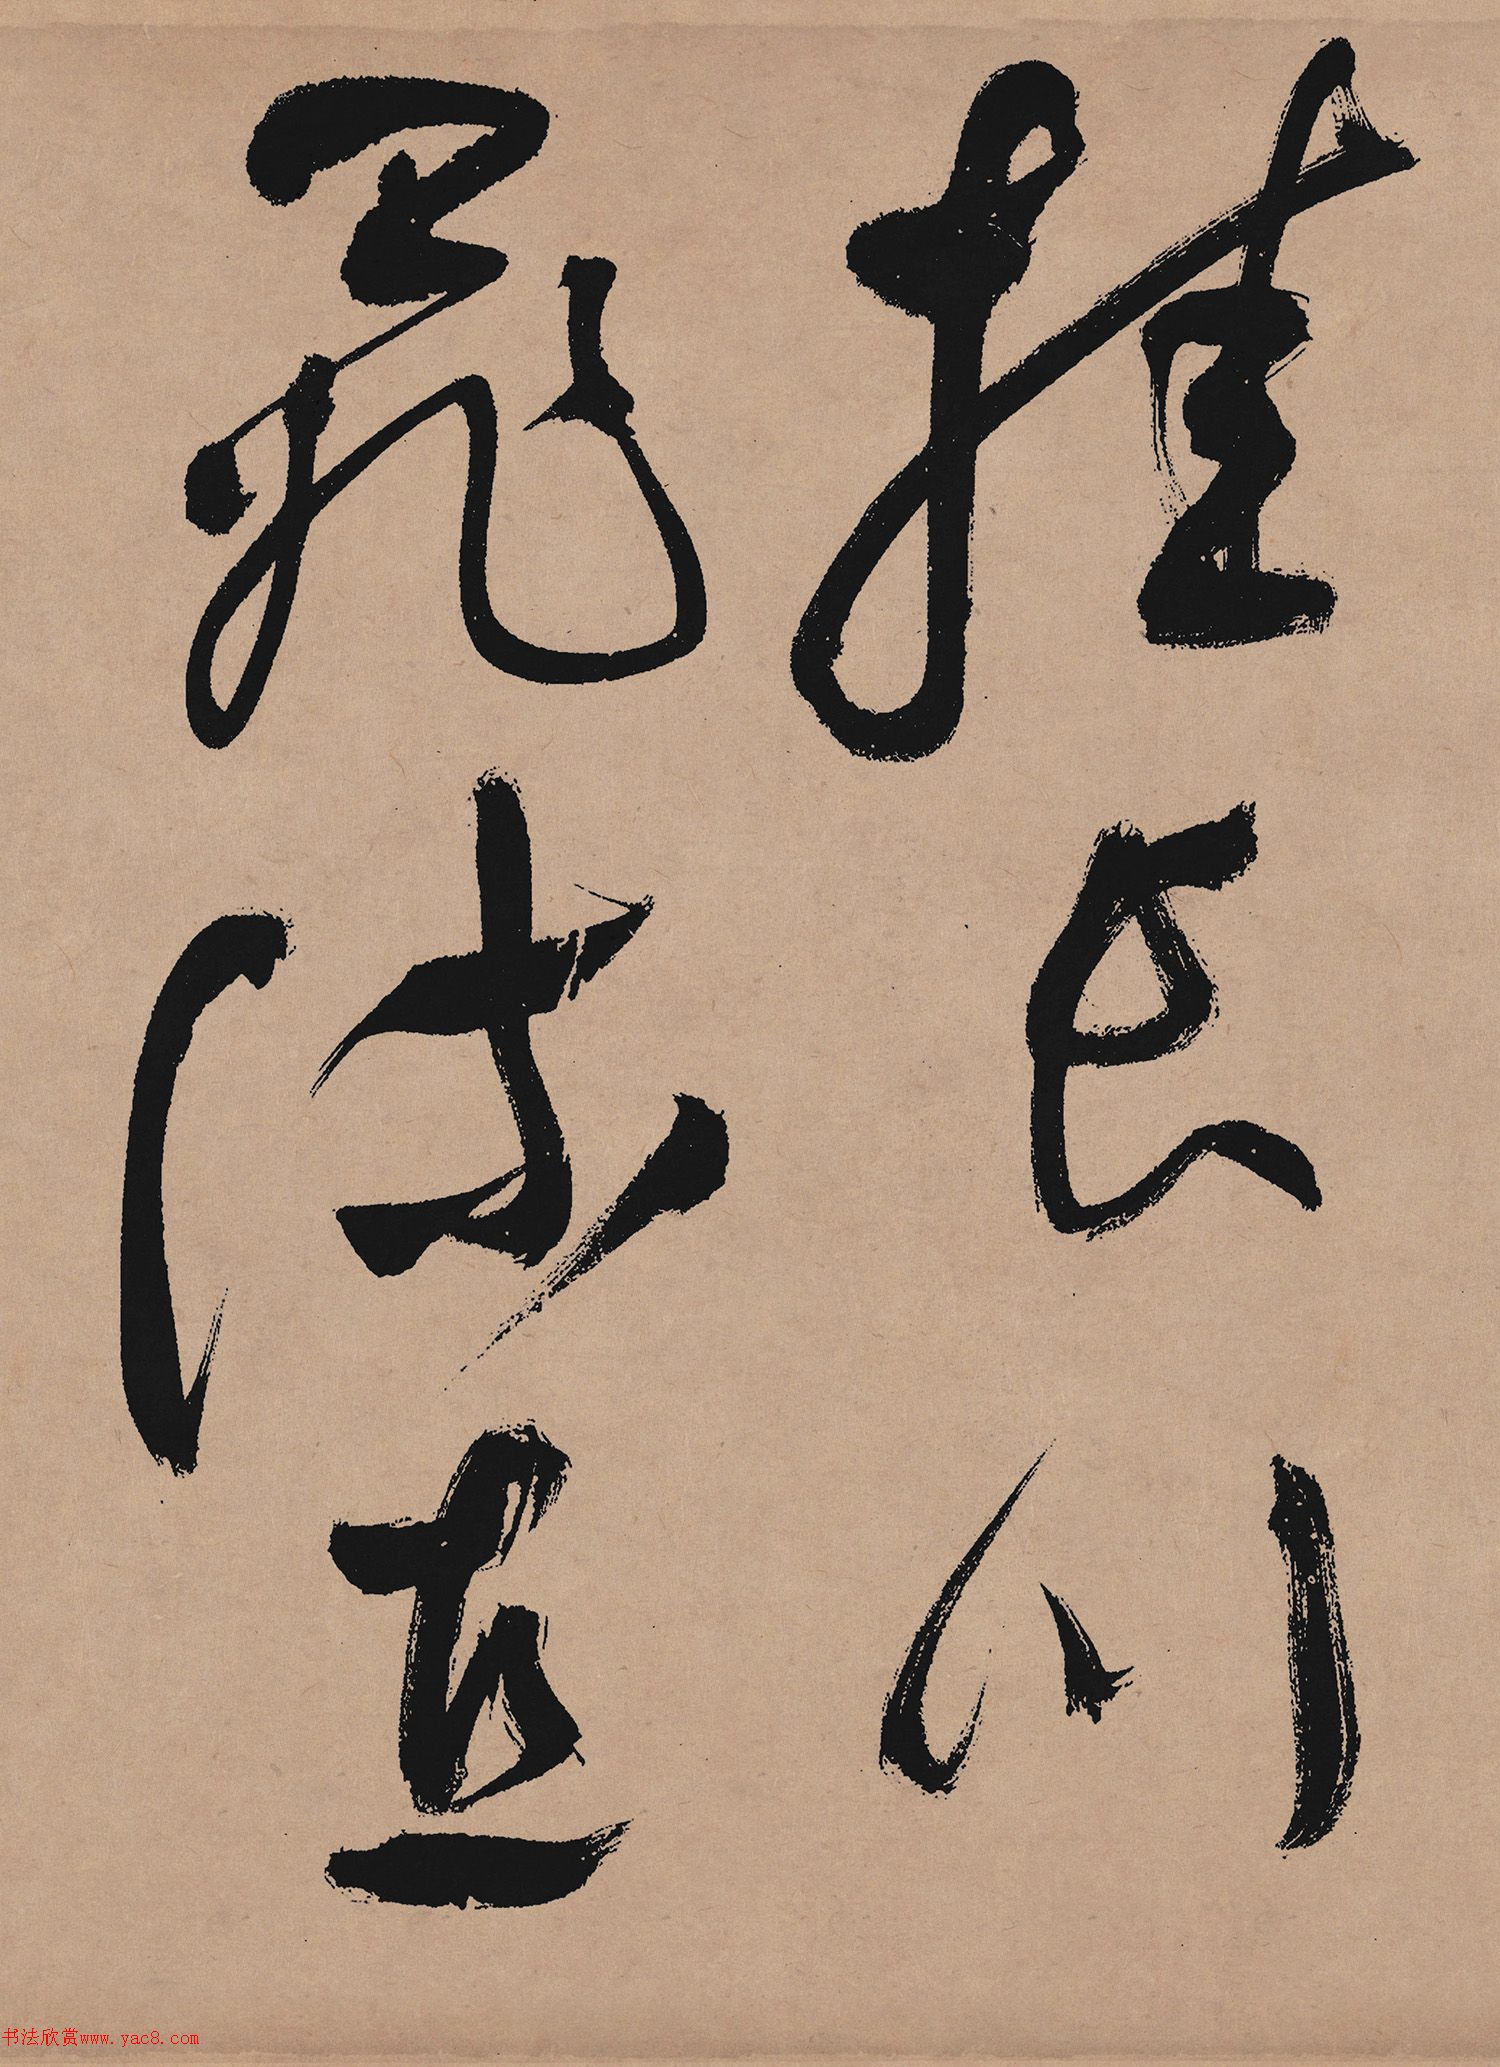 挂长川
飛流直
书法欣赏www.yac8.com